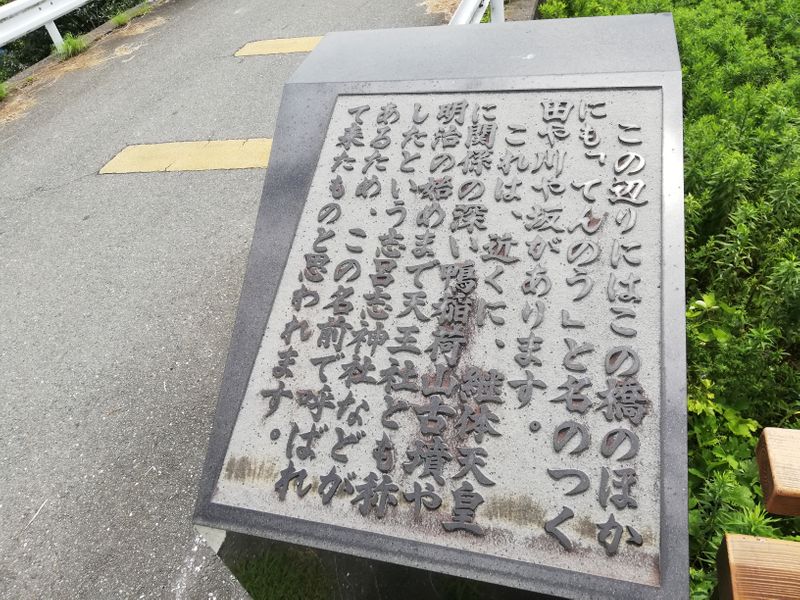 この辺りにはこの橋のほか
にも「てんのう」と名のつく
田や川や坂があります。
これは、近くに、継体天皇
に関係の深い鴨稲荷山古墳や
明治の始めまで天王社とも称
したという志呂志神社などが
あるため、この名前で呼ばれ
て来たものと思われます。